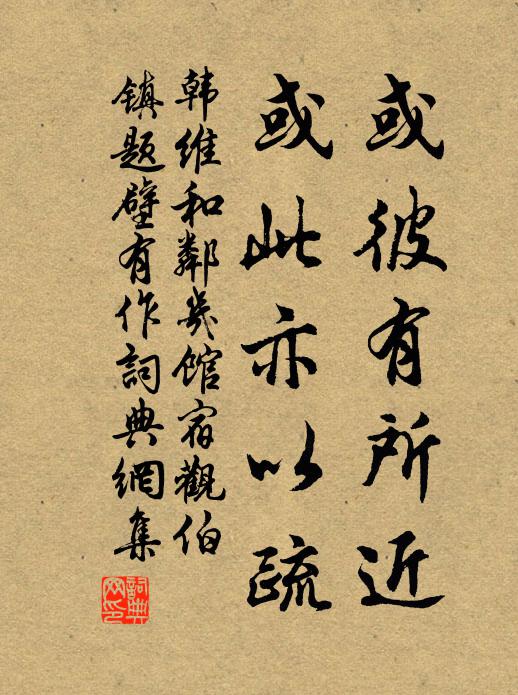 或彼有所近
或此亦以疏
韩维和鄰幾馆宿觀伯
镇题壁有作詞典網集
詞典网印